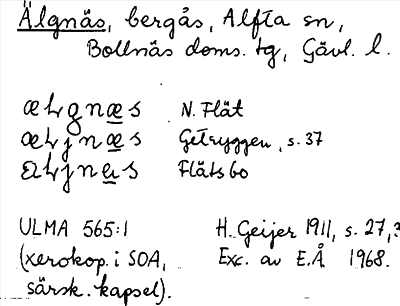 Älgnäs, bergås, Alfta sn,
Bollnäs doms. tg, Gävl. l.
æƚgnæs N. Flät
æƚjnæs Getryggen, s. 37
aƚjnas Flätsbo
ULMA 565:1 H. Geijer 1911, s. 27,
(xerokop. i SOA, Exc. av E.Å 1968.
särsk. kapsel).